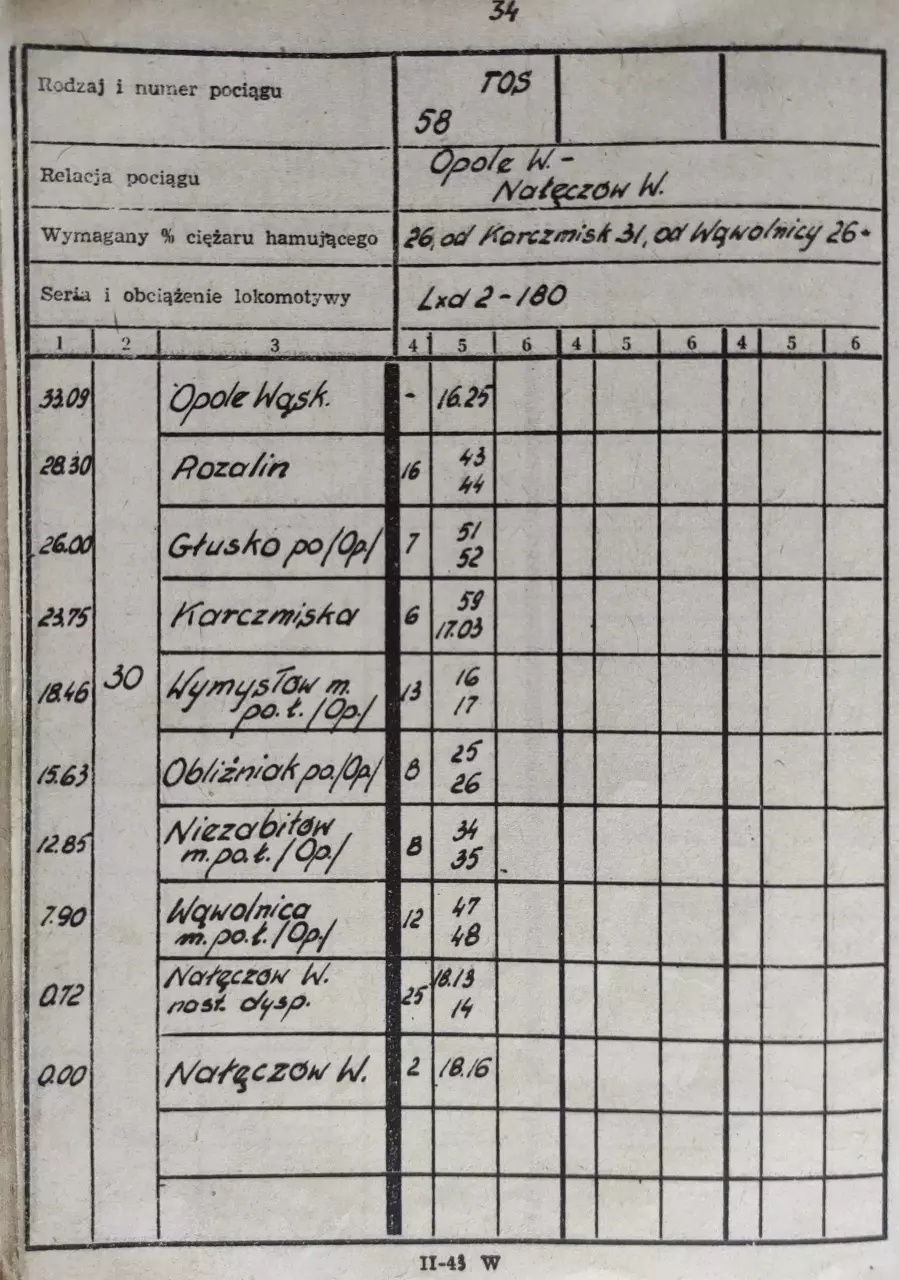 34
Rodzaj i numer pociągu
TOS
58
Relacja pociągu
Opole W. -
Nałęczów W.
Wymagany % ciężaru hamującego
26, od Karczmisk 31, od Wąwolnicy 26.
Seria i obciążenie lokomotywy
Lxd 2 - 180
1 2 3 4 5 6 4 5 6 4 5 6
33.09 Opole Wąsk. - 16.25
28.30 Rozalin 16 43
44
26.00 Głusko po /Op/ 7 51
52
23.75 Karczmiska 6 59
17.03
30
18.46 Wymysłów m. 13 16
po. ł. /Op./ 17
15.63 Obliźniak po. /Op/ 8 25
26
12.85 Niezabitów 8 34
m. po. ł. /Op./ 35
7.90 Wąwolnica 12 47
m. po. ł. /Op./ 48
0.72 Nałęczów W. 25 18.13
nast. dysp. 14
0.00 Nałęczów W. 2 18.16
II-43 W